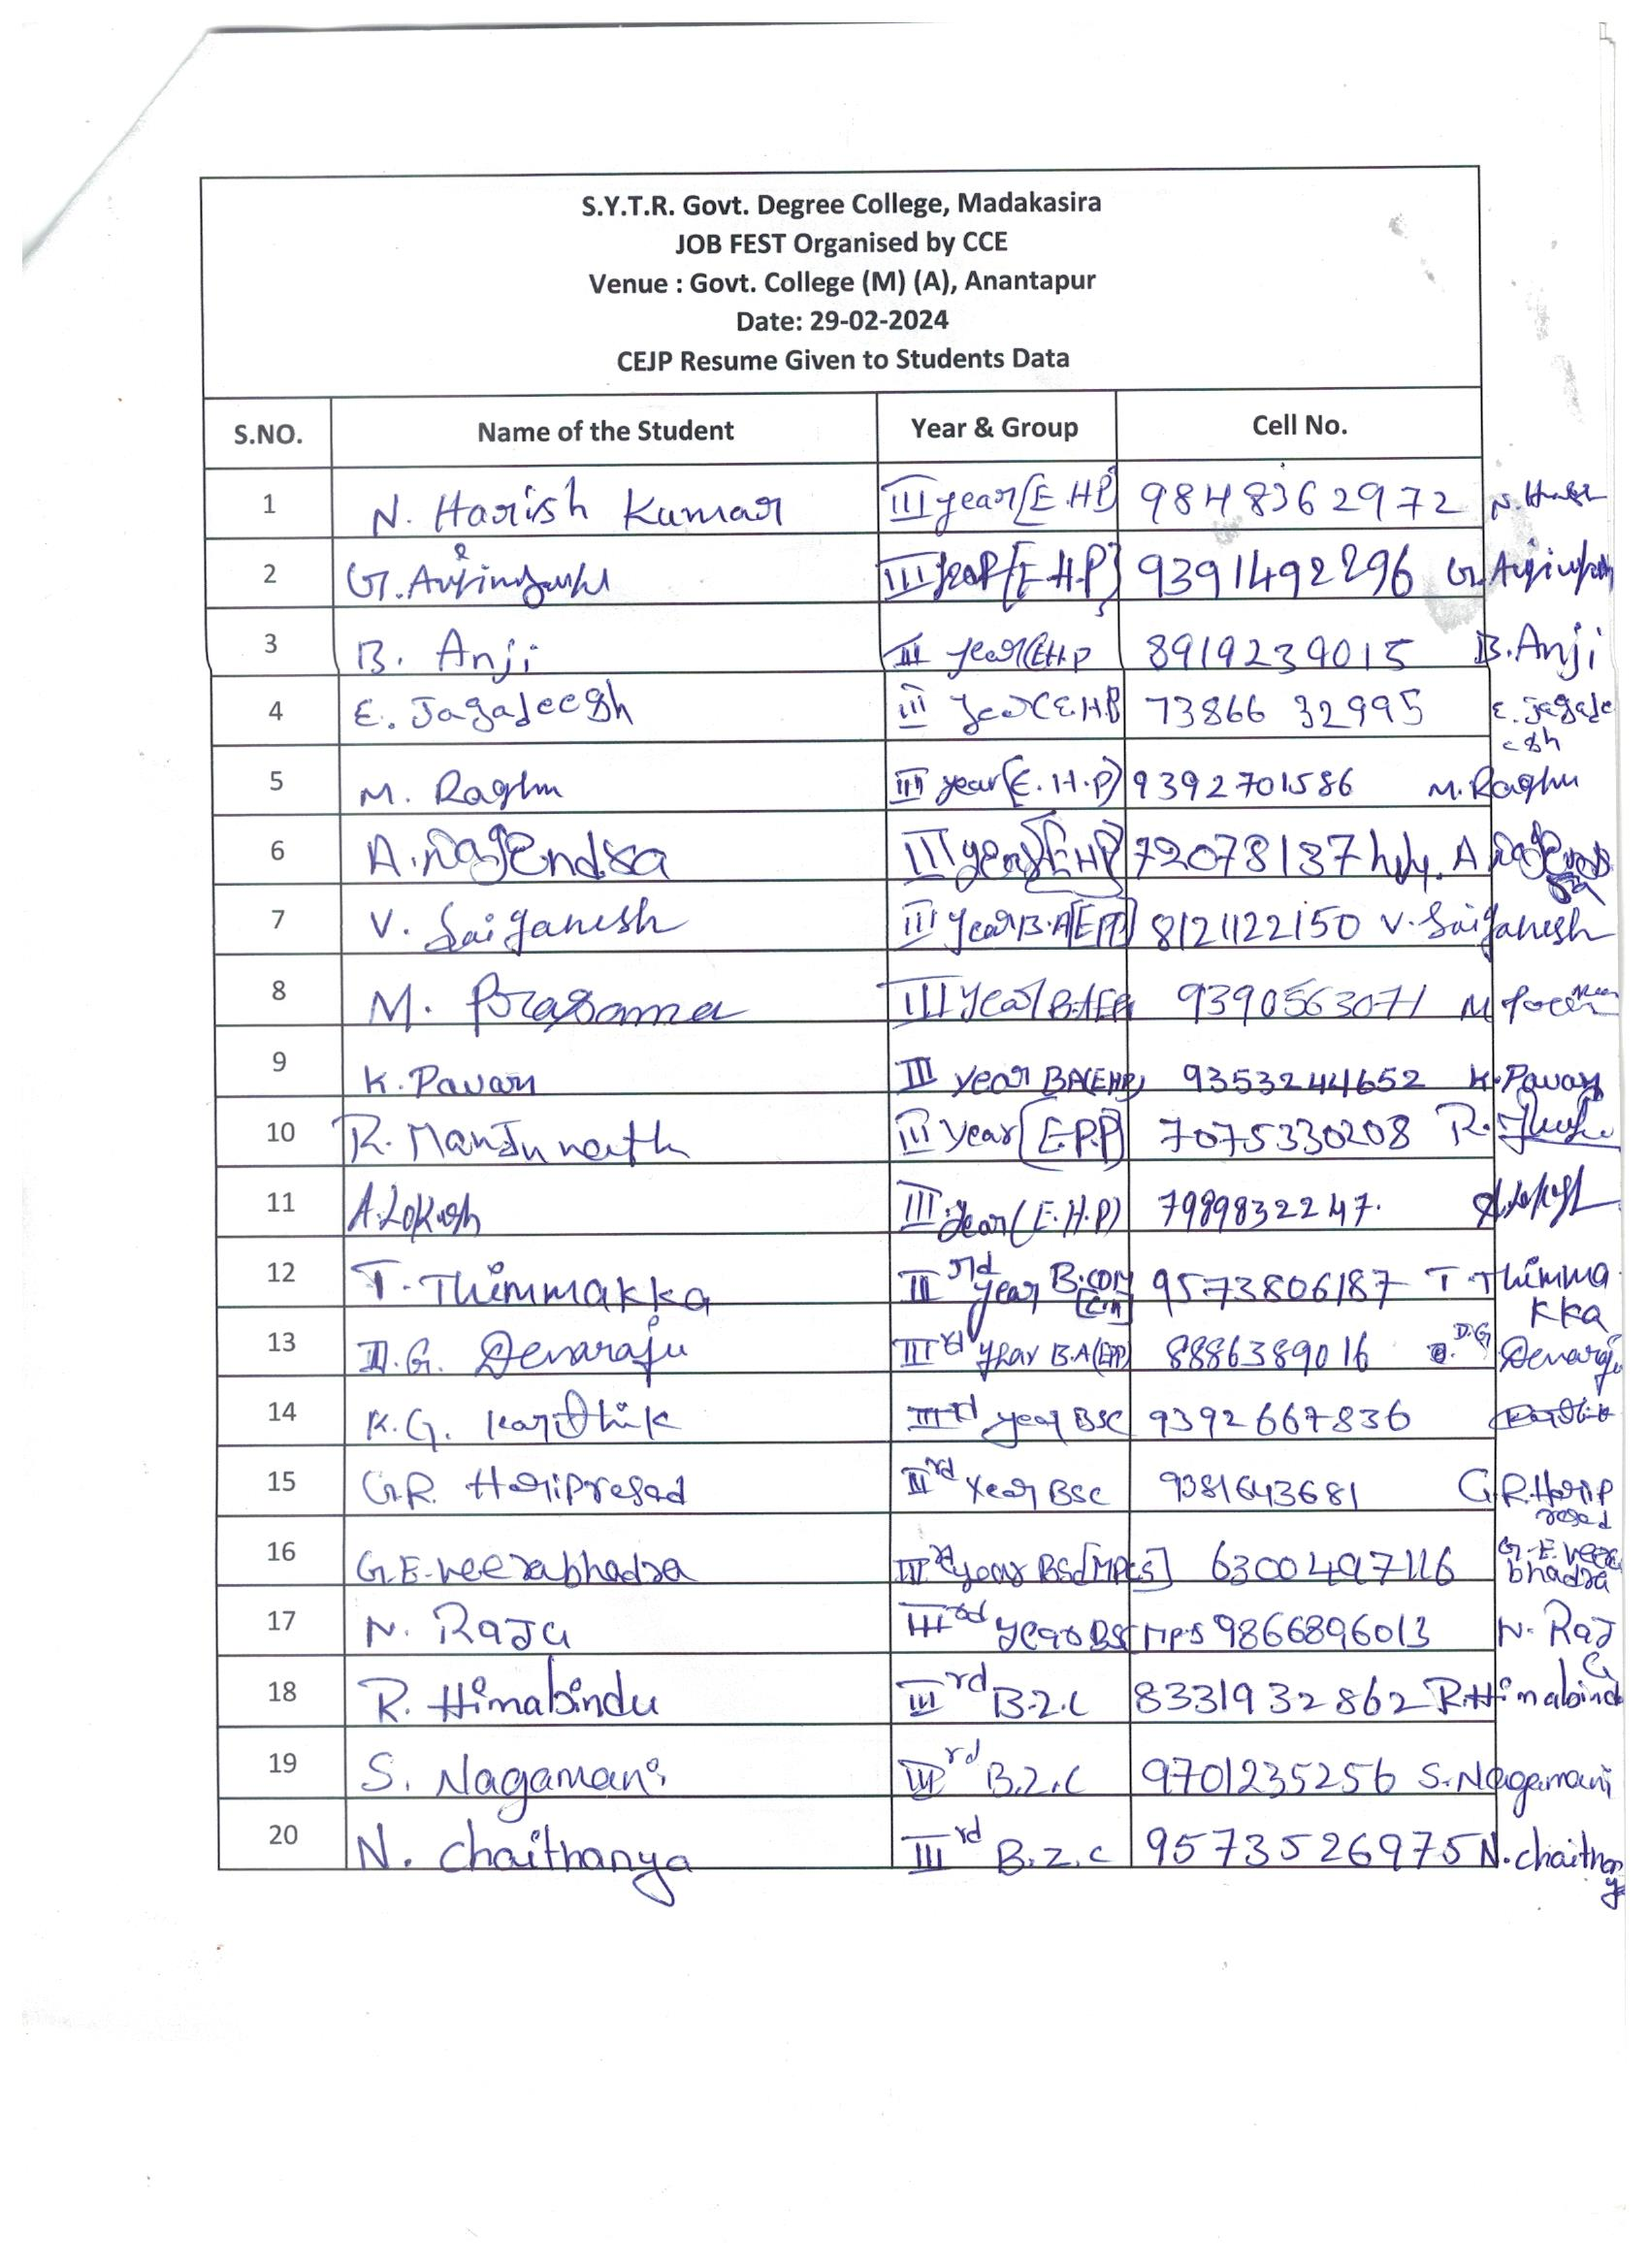 S.Y.T.R. Govt. Degree College, Madakasira
JOB FEST Organised by CCE
Venue : Govt. College (M) (A), Anantapur
Date: 29-02-2024
CEJP Resume Given to Students Data
S.NO. Name of the Student Year & Group Cell No.
1 N. Harish Kumar III year [E.HP] 9848362972
2 III year [E.H.P] 9391492296
3 B. Anji III year (EH.P 8919239015 B.Anji
4 E. Jagadeesh III year (E.H.P 73866 32995 E. Jagade
esh
5 M. Raghu III year (E.H.P) 9392701586 M.Raghu
6 A. Nagendra III year [EHP]
7 V. Saiganesh III year B.A [EPP] 8121122150 V. Saiganesh
8 M. III year 9390563071 M
9 K. Pavan III year BA(EHP) 9353244652 K. Pavan
10 R. Manjunath III year [E.P.P] 7075330208 R.
11 A. Lokesh III year (E.H.P) 7989832247.
12 T. Thimmakka III rd year B.COM 9573806187 T. Thimma
kka
13 D.G. Devaraju III rd year B.A (EPP) 8886389016 D.G Devaraju
14 K.G. Karthik III rd year BSC 9392667836
15 G.R. Hariprasad III rd Year BSC 9381643681 G.R. Harip
rasad
16 G.E. veerabhadra III rd year BSc [MPCS] 6300497116 G.E. veera
bhadra
17 N. RaJu III rd year BSC MPS 9866896013 N. RaJ
u
18 R. Himabindu III rd B.Z.C 8331932862 R. Himabind
19 S. Nagamani III rd B.Z.C 9701235256 S. Nagamani
20 N. chaithanya III rd B.Z.C 9573526975 N. chaithan
ya